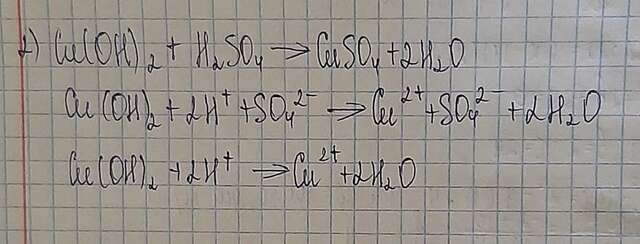 2) Cu(OH)₂ + H₂SO₄ → CuSO₄ + 2H₂O
Cu(OH)₂ + 2H⁺ + SO₄²⁻ → Cu²⁺ + SO₄²⁻ + 2H₂O
Cu(OH)₂ + 2H⁺ → Cu²⁺ + 2H₂O